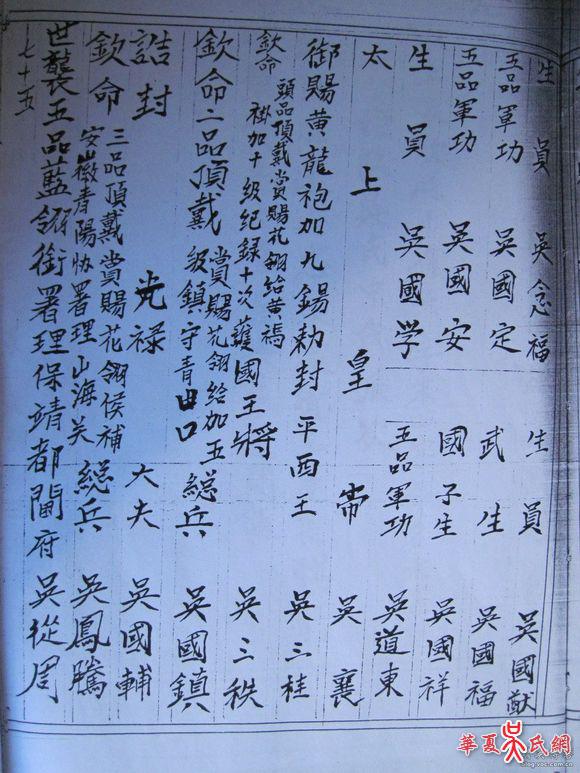 生員 吳念福 生員 吳國猷
五品軍功 吳國定 武生 吳國福
五品軍功 吳國安 國子生 吳國祥
生員 吳國学 五品軍功 吳道東
太上皇帝 吳襄
御賜黃龍袍加九錫勅封平西王 吳三桂
欽命頭品頂戴賞賜花翎給黃馬褂加十級纪録十次護國王將 吳三秩
欽命二品頂戴賞賜花翎给加五級鎮守青田口總兵 吳國鎮
誥封光禄大夫 吳國輔
欽命三品頂戴賞賜花翎侯補安徽青陽协署理山海关總兵 吳鳳騰
世襲五品藍翎銜署理保靖都閫府 吳從周
七十五
華夏吳氏網
blog.voc.com.cn